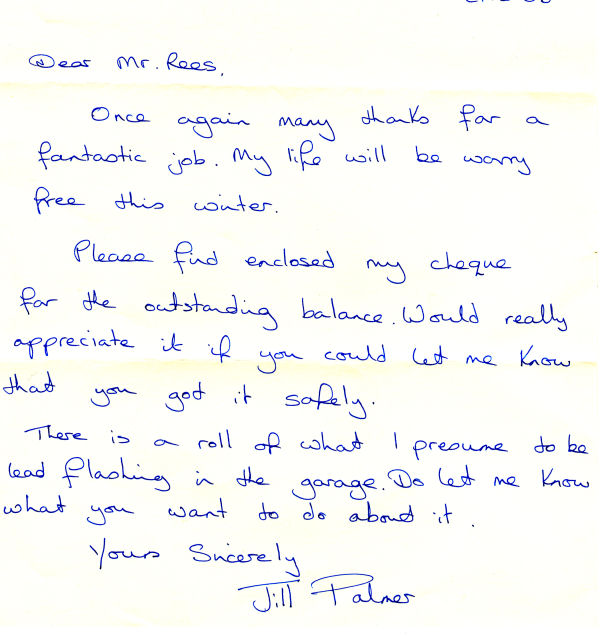 Dear Mr. Rees,
Once again many thanks for a
fantastic job. My life will be worry
free this winter.
Please find enclosed my cheque
for the outstanding balance. Would really
appreciate it if you could let me know
that you got it safely.
There is a roll of what I presume to be
lead flashing in the garage. Do let me know
what you want to do about it.
Yours Sincerely
Jill Palmer